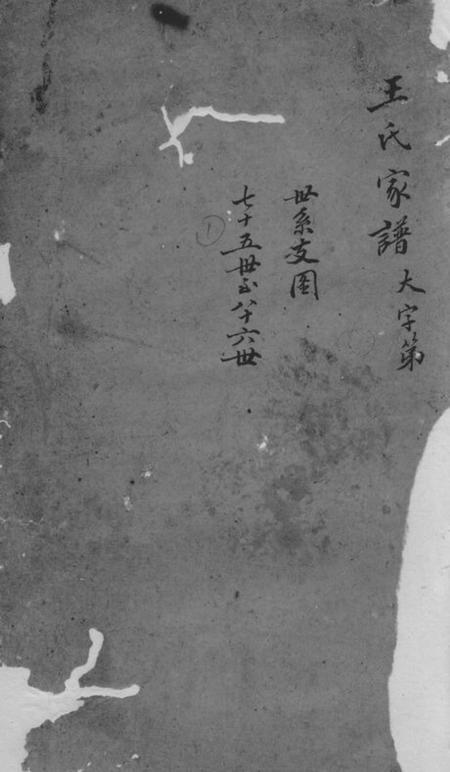 王氏家譜大字第
世系支图
七十五世至八十六世
1